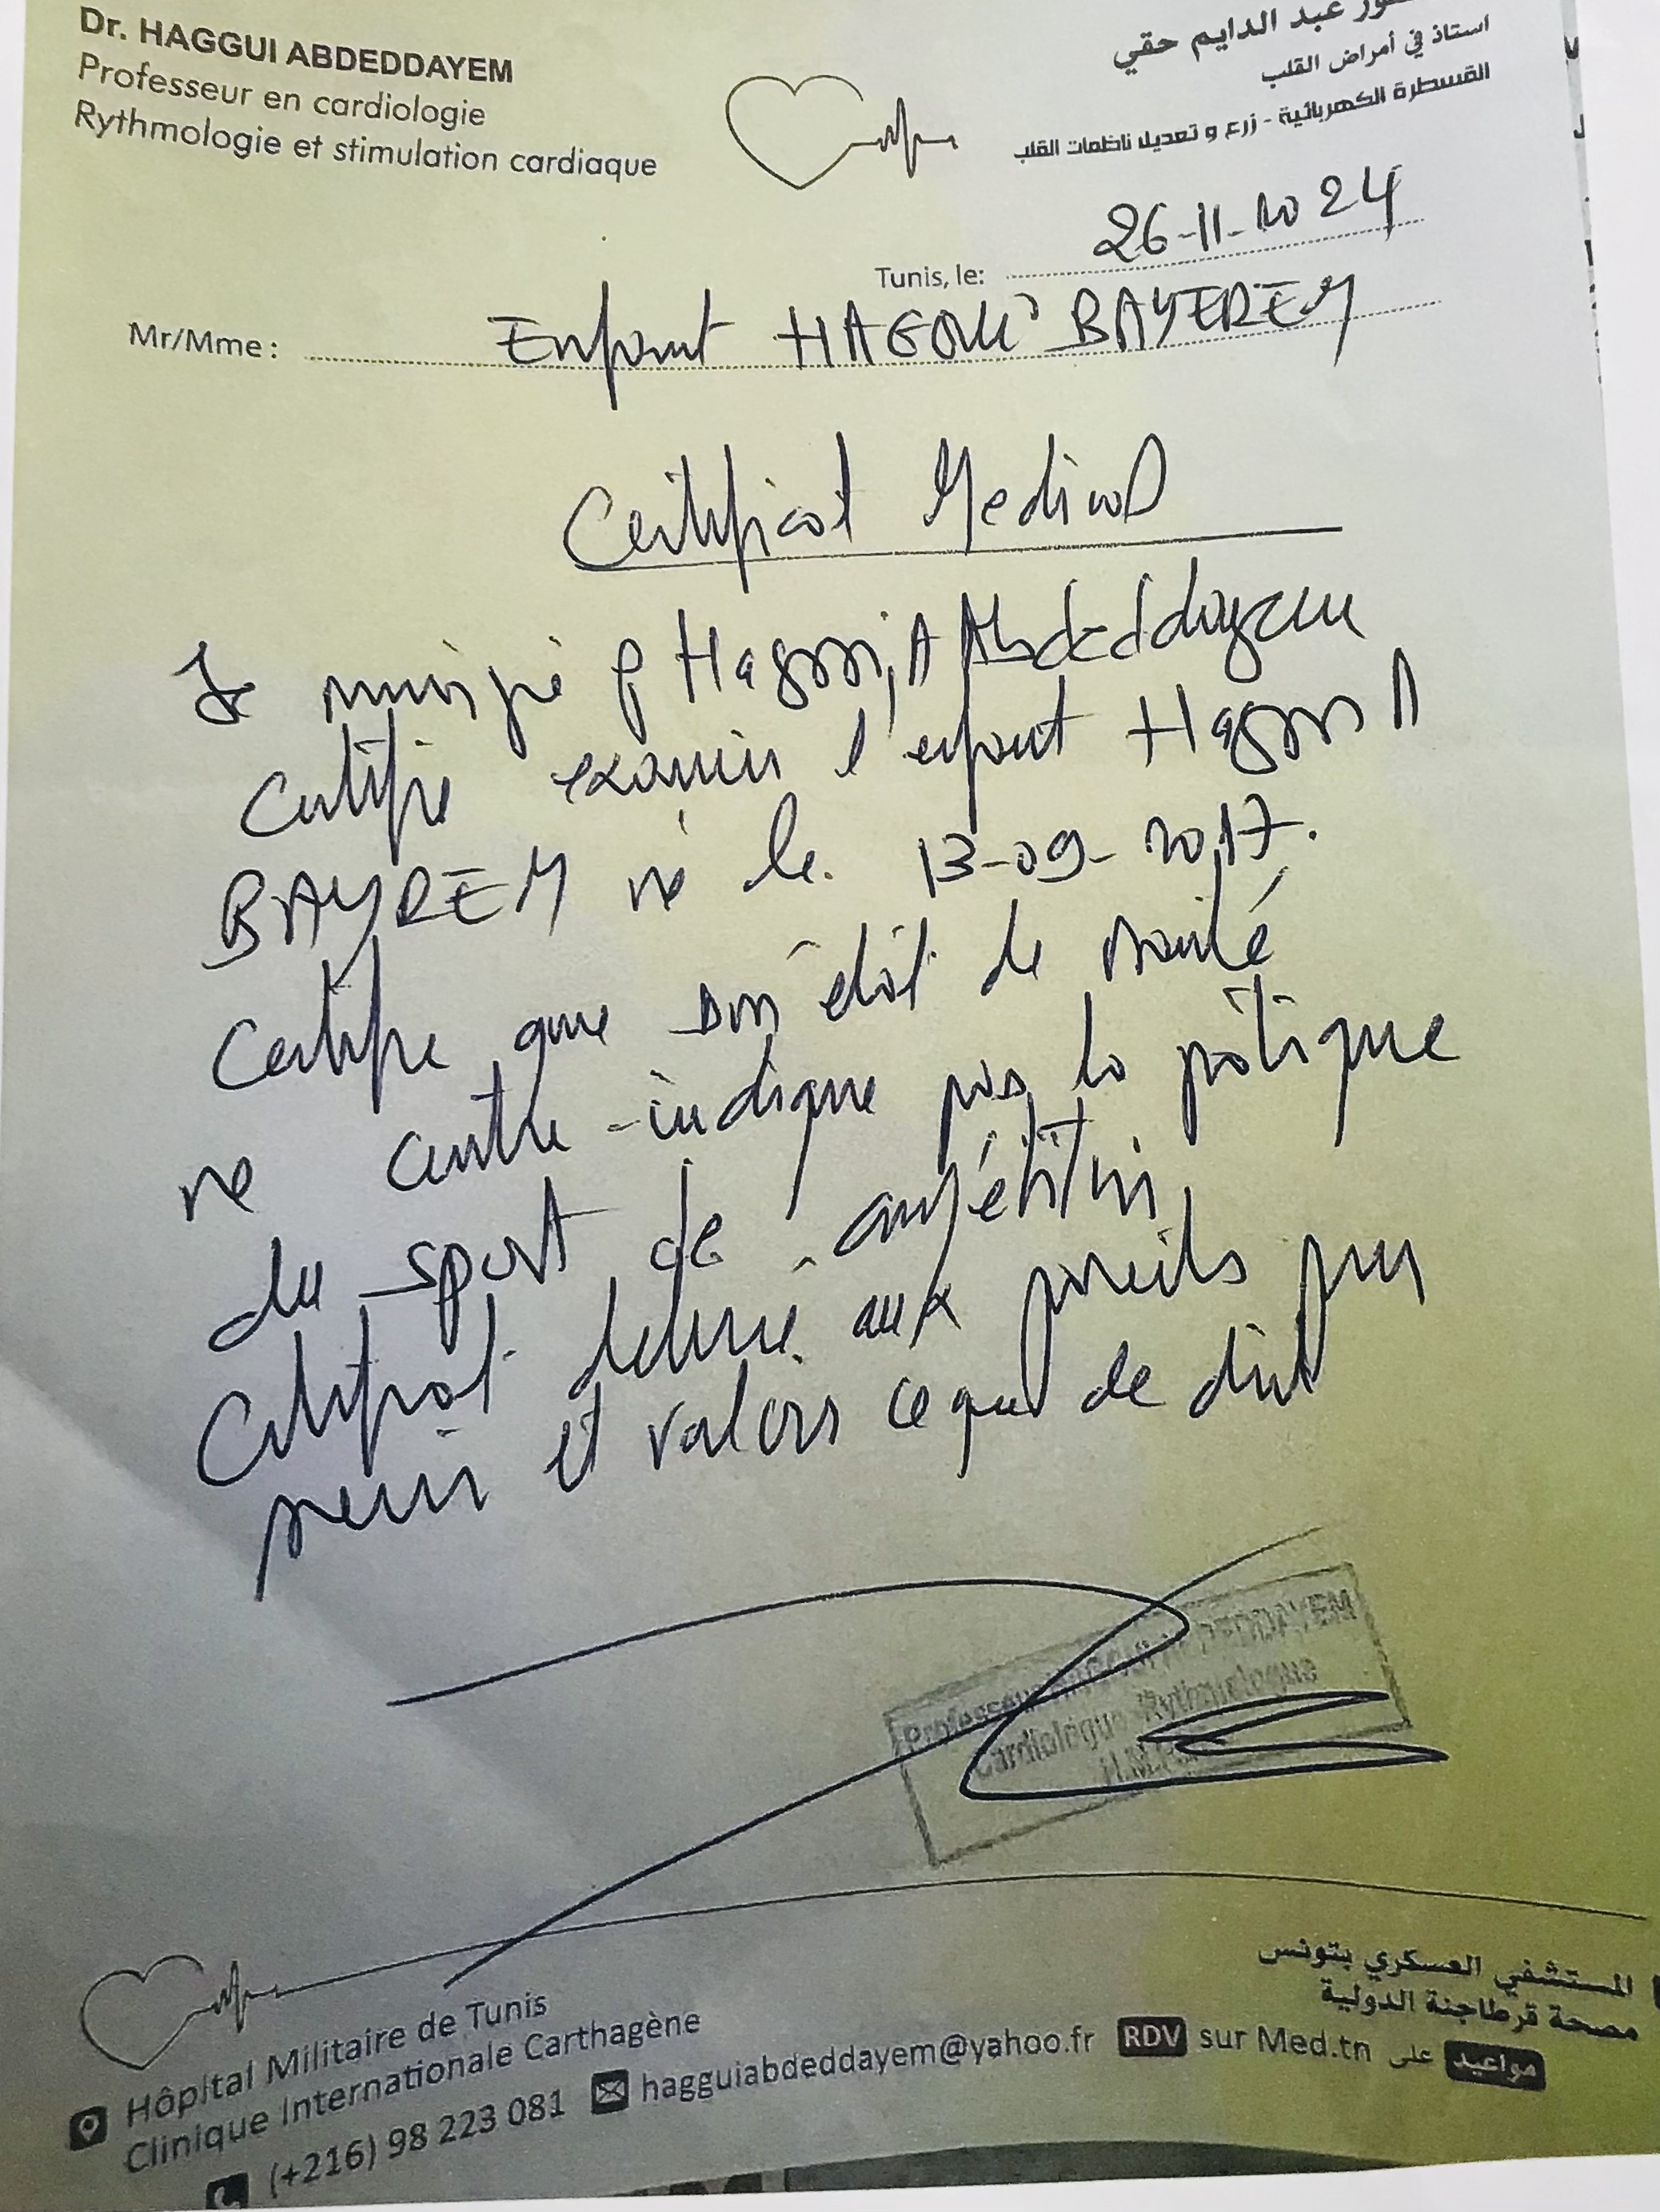 Dr. HAGGUI ABDEDDAYEM
Professeur en cardiologie
Rythmologie et stimulation cardiaque
عبد الدايم حقي
استاذ في أمراض القلب
القسطرة الكهربائية - زرع و تعديل ناظمات القلب
Tunis, le: 26-11-2024
Mr/Mme : Enfant HAGGUI BAYEREM
Certificat Medical
Je Haggui A Abdeddayem
certifie examiner l'enfant Haggui
BAYREM né le. 13-09-2017.
Certifie que son état de santé
ne contre-indique pas la pratique
du sport de compétition
Certificat délivré aux parents pour
servir et valoir ce que de droit
Professeur ABDEDDAYEM
Cardiologue Rythmologue
المستشفي العسكري بتونس
مصحة قرطاجنة الدولية
Hôpital Militaire de Tunis
Clinique Internationale Carthagène
(+216) 98 223 081 hagguiabdeddayem@yahoo.fr RDV sur Med.tn مواعيد على